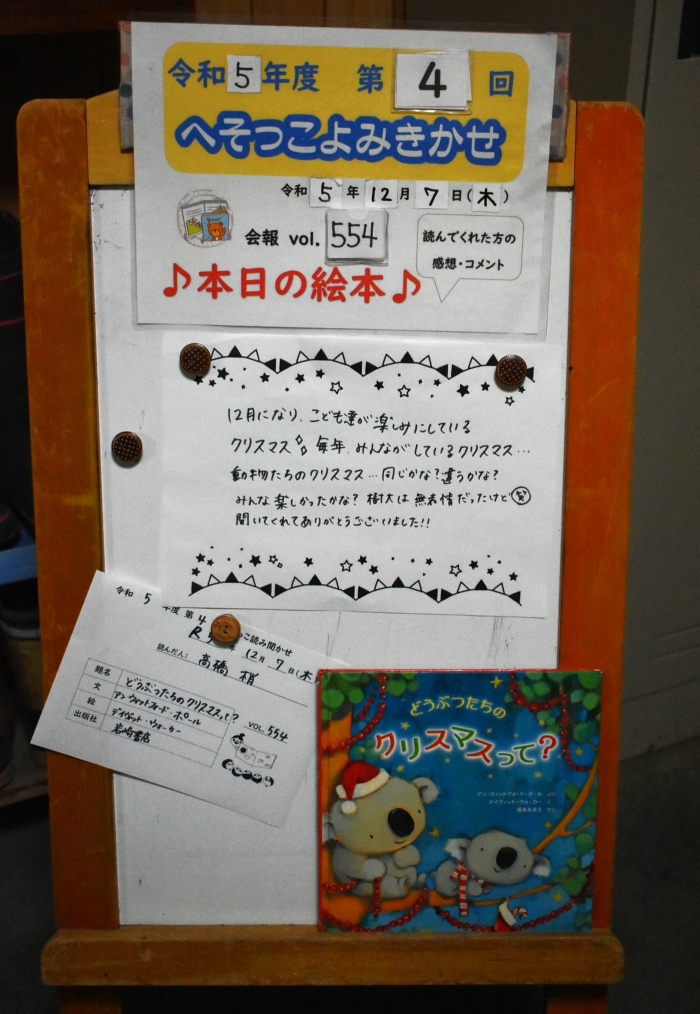 令和5年度 第4回
へそっこよみきかせ
令和5年12月7日(木)
会報 vol. 554
読んでくれた方の
感想・コメント
♪本日の絵本♪
12月になり、こども達が楽しみにしている
クリスマス 毎年、みんながしているクリスマス…
動物たちのクリスマス…同じかな?違うかな?
みんな楽しかったかな? 樹大は無表情だったけど笑
聞いてくれてありがとうございました!!
令和 5 年度 第4
っこ読み聞かせ
12月 7日(木)
読んだ人: 高橋 梢
題名 どうぶつたちのクリスマスって?
文 アン・ウィットフォード・ポール
絵 デイヴィッド・ウォーカー
出版社 岩崎書店
VOL. 554
どうぶつたちの
クリスマスって?
アン・ウィットフォード・ポール ぶん
デイヴィッド・ウォーカー え